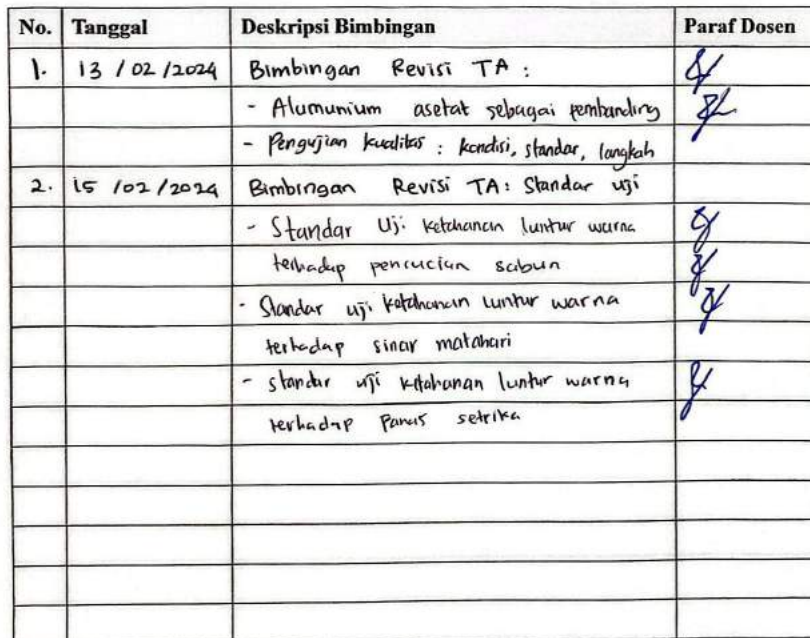 No. Tanggal Deskripsi Bimbingan Paraf Dosen
1. 13 / 02 / 2024 Bimbingan Revisi TA :
- Alumunium asetat sebagai pembanding
- Pengujian kualitas : kondisi, standar, langkah
2. 15 / 02 / 2024 Bimbingan Revisi TA : Standar uji
- Standar Uji ketahanan luntur warna
terhadap pencucian sabun
- Standar uji ketahanan luntur warna
terhadap sinar matahari
- standar uji ketahanan luntur warna
terhadap Panas setrika